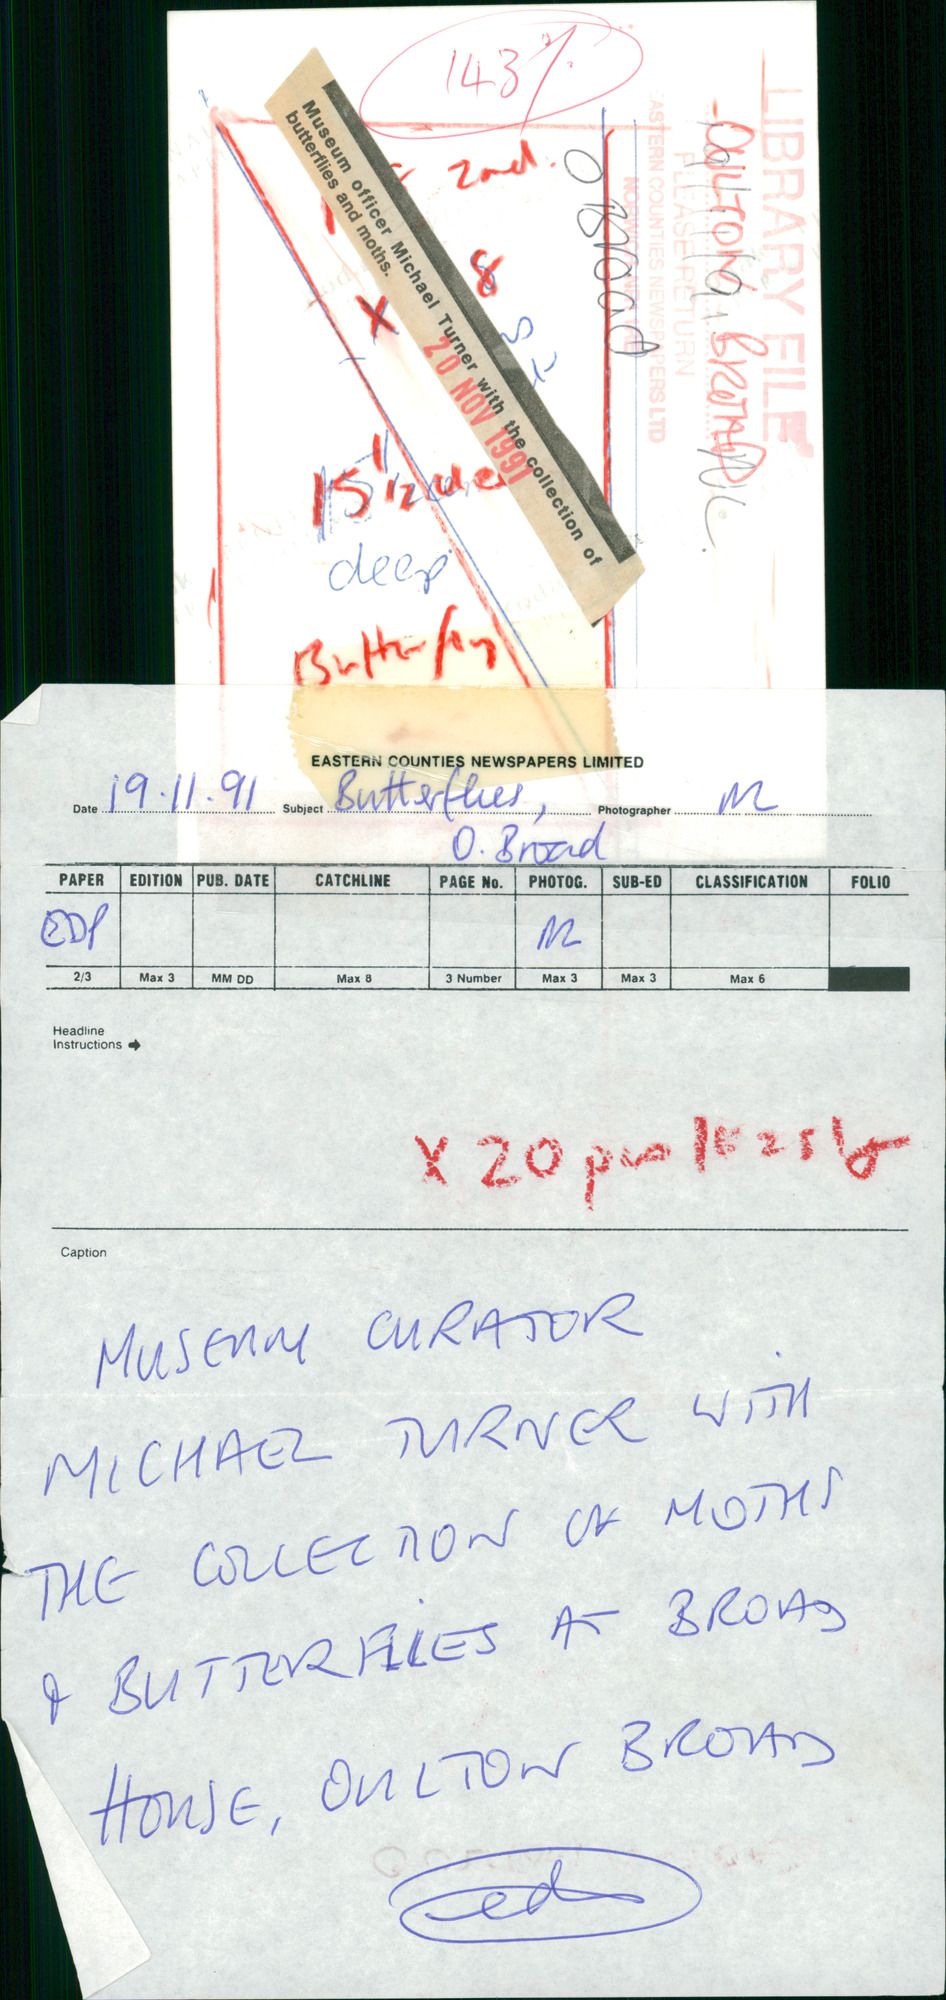 143%
LIBRARY FILE
PLEASE RETURN
EASTERN COUNTIES NEWSPAPERS LTD
O Broad
2nd.
8
X
Museum officer Michael Turner with the collection of
butterflies and moths.
20 NOV 1991
15 1/2
deep
Butterfly
EASTERN COUNTIES NEWSPAPERS LIMITED
Date 19.11.91 Subject Butterflies, Photographer
O. Broad
PAPER EDITION PUB. DATE CATCHLINE PAGE No. PHOTOG. SUB-ED CLASSIFICATION FOLIO
EDP
2/3 Max 3 MM DD Max 8 3 Number Max 3 Max 3 Max 6
Headline
Instructions
X 20
Caption
MUSEUM CURATOR
MICHAEL TURNER WITH
THE COLLECTION OF MOTHS
& BUTTERFLIES AT BROAD
HOUSE, OULTON BROAD